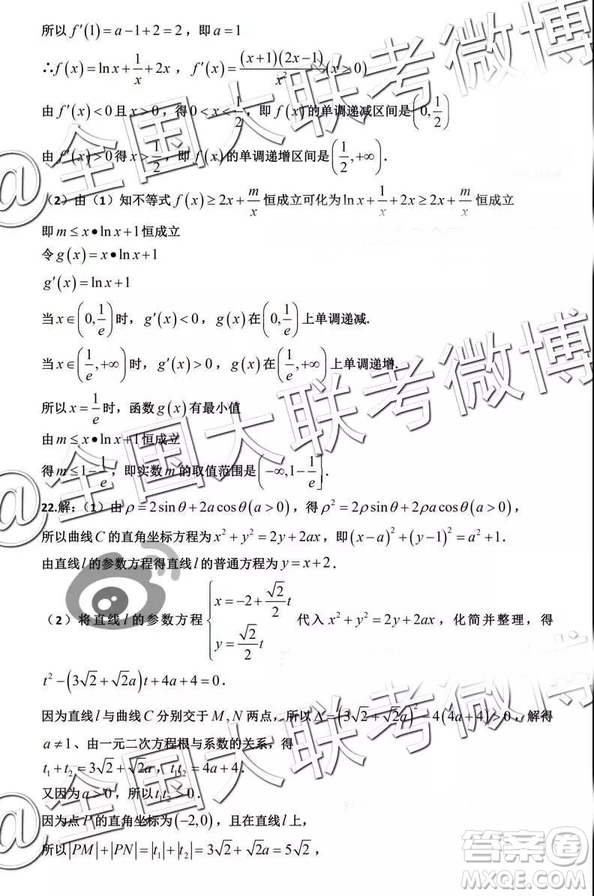 所以 f′(1)=a−1+2=2，即 a=1
∴f(x)=ln x+1/x+2x，f′(x)=(x+1)(2x−1)/x²(x>0)
由 f′(x)<0 且 x>0，得 0<x<1/2，即 f(x)的单调递减区间是(0,1/2)
由 f′(x)>0 得 x>1/2，即 f(x)的单调递增区间是(1/2,+∞)．
（2）由（1）知不等式 f(x)≥2x+m/x 恒成立可化为 ln x+1/x+2x≥2x+m/x 恒成立
即 m≤x•ln x+1 恒成立
令 g(x)=x•ln x+1
g′(x)=ln x+1
当 x∈(0,1/e)时，g′(x)<0，g(x)在(0,1/e)上单调递减.
当 x∈(1/e,+∞)时，g′(x)>0，g(x)在(1/e,+∞)上单调递增.
所以 x=1/e 时，函数 g(x)有最小值
由 m≤x•ln x+1 恒成立
得 m≤1−1/e，即实数 m 的取值范围是(−∞,1−1/e]．
22.解：（1）由 ρ=2sinθ+2a cosθ(a>0)，得 ρ²=2ρ sinθ+2ρa cosθ(a>0)，
所以曲线 C 的直角坐标方程为 x²+y²=2y+2ax，即(x−a)²+(y−1)²=a²+1．
由直线 l 的参数方程得直线 l 的普通方程为 y=x+2．
（2）将直线 l 的参数方程{x=−2+√2/2 t，y=√2/2 t 代入 x²+y²=2y+2ax，化简并整理，得
t²−(3√2+√2a)t+4a+4=0．
因为直线 l 与曲线 C 分别交于 M,N 两点，所以 =(3√2+√2a)²−4(4a+4)>0，解得
a≠1、由一元二次方程根与系数的关系，得
t₁+t₂=3√2+√2a，t₁t₂=4a+4．
又因为 a>0，所以 t₁t₂>0．
因为点 P 的直角坐标为(−2,0)，且在直线 l 上，
所以|PM|+|PN|=|t₁|+|t₂|=3√2+√2a=5√2，
@全国大联考微博
@全国大联考微博
@全国大联考微博
答案卷